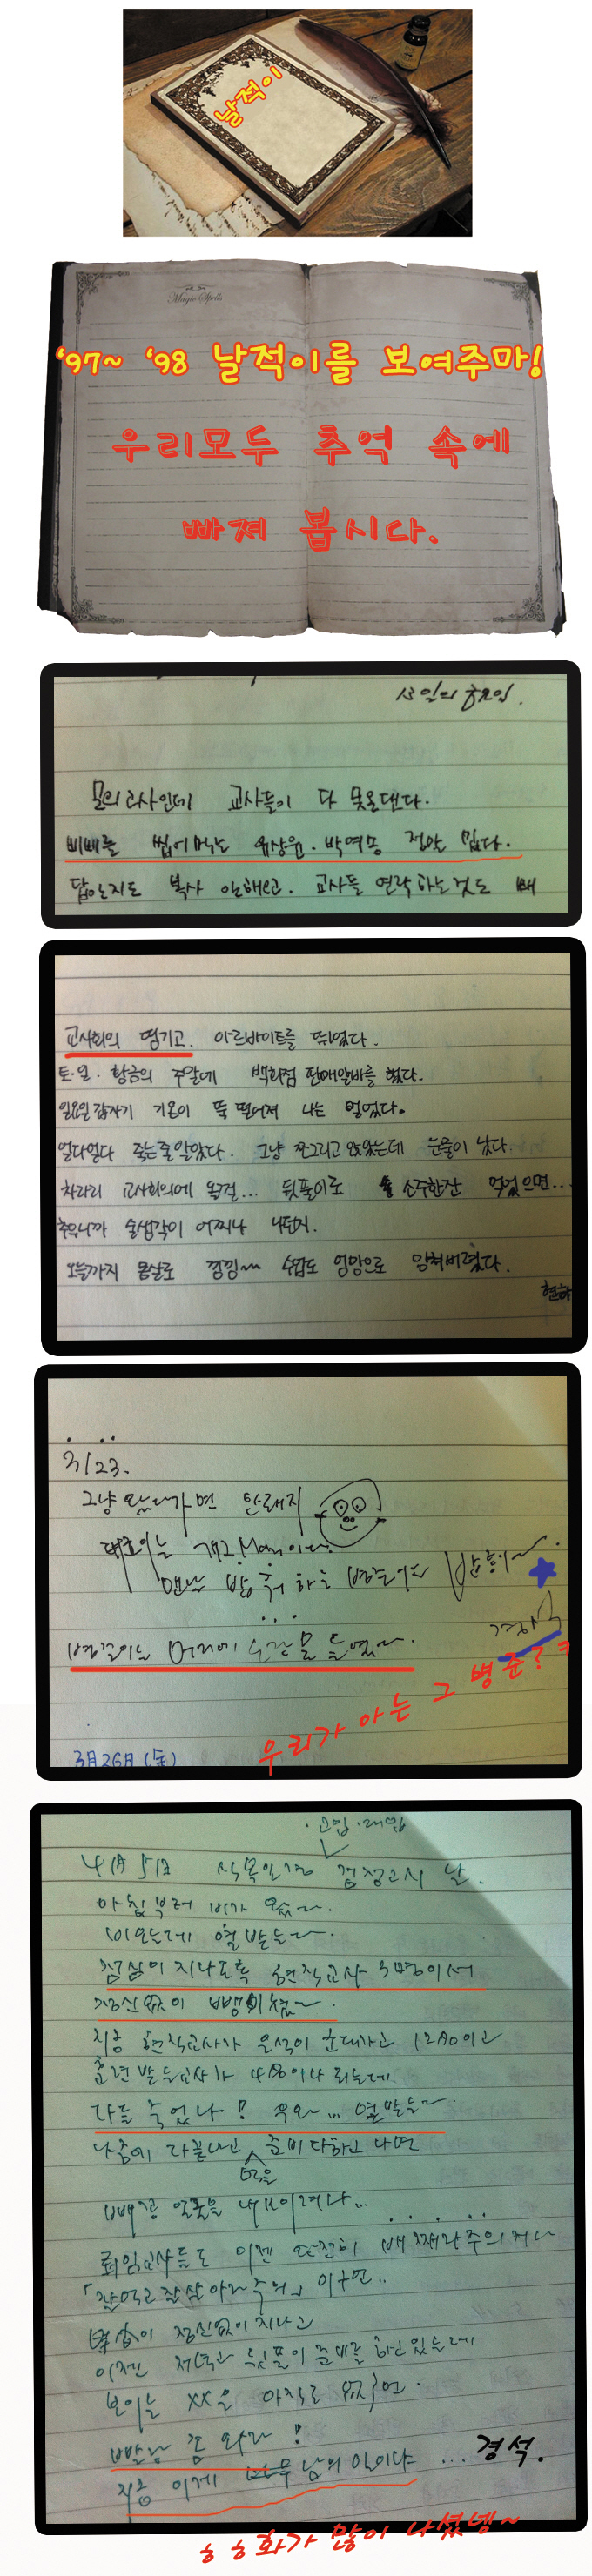 날적이
Magic Spells
‘97~ ‘98 날적이를 보여주마!
우리모두 추억 속에
빠져 봅시다.
13일의 금요일.
모의고사인데 교사들이 다 못온댄다.
삐삐를 씹어먹는 유상원. 박여송 정말 밉다.
답안지도 복사 안해오고. 교사들 연락하는것도
교사회의 띵기고. 아르바이트를 뛰었다.
토.일. 황금의 주말에 백화점 판매알바를 했다.
일요일 갑자기 기온이 뚝 떨어져 나는 얼었다.
얼다얼다 죽는줄 알았다. 그냥 쪼그리고 앉았는데 눈물이 났다.
차라리 교사회의에 올걸... 뒷풀이로 소주한잔 먹었으면...
추우니까 술생각이 어찌나 나던지.
오늘까지 몸살로 낑낑~~ 수업도 엉망으로 망쳐버렸다.
현하
3/23.
그냥 왔다가면 안돼지
대호이는 개그Man이다.
맨날
머리에 물 들였다.
우리가 아는 그 병준? ㅋ
3月26日(金)
고입·대입
4月 5日 식목일겸 검정고시 날.
아침부터 비가 왔다.
비오는데 열받는다.
점심이 지나도록 현직교사 5명이서
정신없이 뺑이쳤다.
지금 현직교사가 은석이 군대가고 12명이고
훈련받는교사가 4명이나 되는데
다들 죽었나! 우와... 열받는다.
나중에 다끝나고 먹을 준비 다하고 나면
빼꼼 얼굴을 내보이려나...
퇴임교사들도 이젠 완전히 배째라주의거나
「잘먹고 잘살아라주의」이구먼..
정신없이 지나고
이젠 저녁과 뒷풀이 준비를 하고 있는데
보이는 XX은 아직도 없구먼.
빨랑 좀 와라!
지금 이게 남의 일이냐 ... 경석.
ㅎㅎ화가 많이 나셨넹~